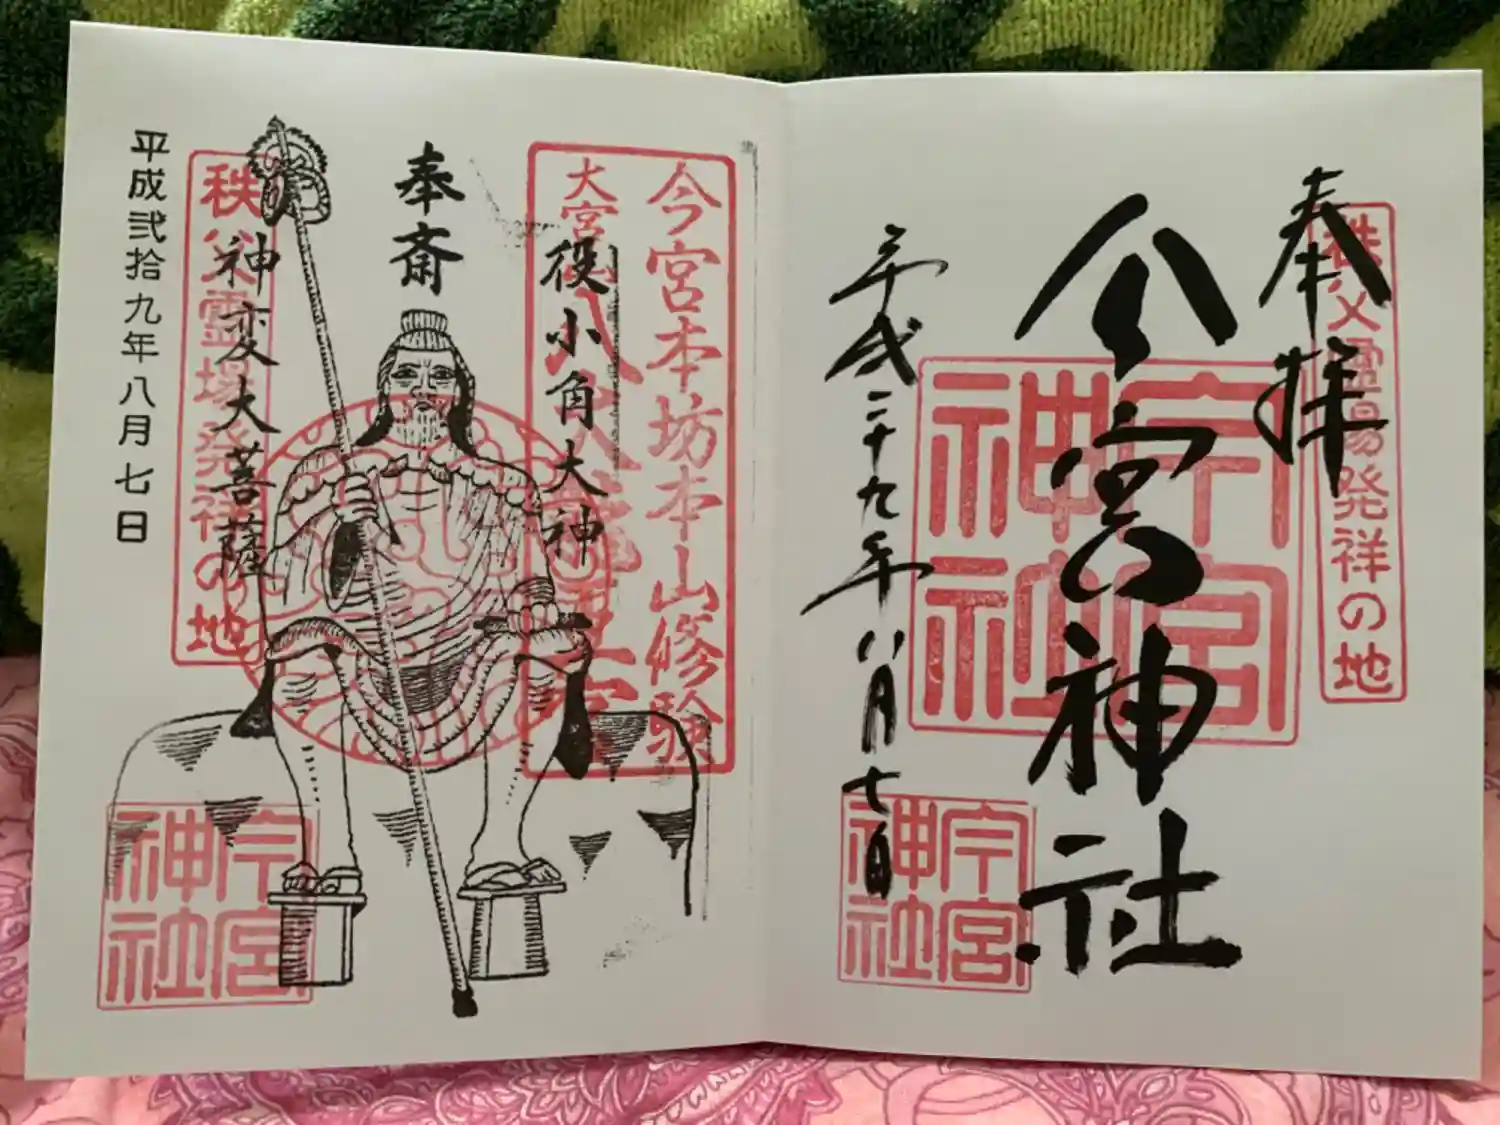 奉拝
秩父霊場発祥の地
今宮神社
今宮神社
平成二十九年八月七日
今宮神社
今宮本坊本山修験
役小角大神
奉斎
神変大菩薩
秩父霊場発祥の地
平成弐拾九年八月七日
今宮神社